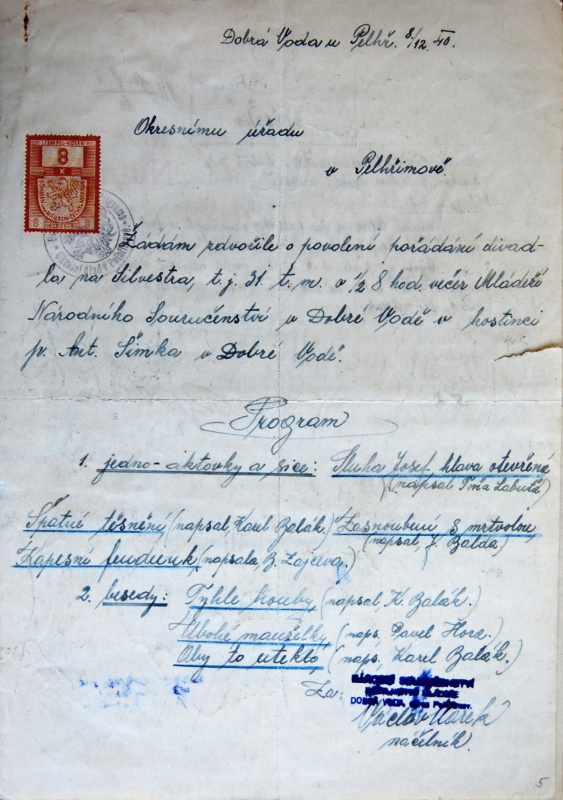 Dobrá Voda u Pelhř. 8/12. 40.
Okresnímu úřadu
v Pelhřimově.
STEMPEL-KOLEK
8
K
8 8
Žádám zdvořile o povolení pořádání divad-
la na Silvestra, t.j. 31. t.m. v 1/2 8 hod. večer Mládeží
Národního Souručenství v Dobré Vodě v hostinci
p. Ant. Šimka v Dobré Vodě.
Program
1. jedno-aktovky a sice: Sluha Josef hlava otevřená
(napsal Labutě)
Špatné těsnění (napsal Karel Balák.) Zasnoubení s mrtvolou
(napsal, J. Balda)
Kapesní (napsala B. Zajcova)
2. besedy: Tyhle houby (napsal K. Balák.)
Ubohé manželky (naps. Pavel Hora.)
Aby to uteklo, (naps. Karel Balák.)
Za: NÁRODNÍ SOURUČENSTVÍ
DOBRÁ VODA,
Václav Marek
náčelník.
5